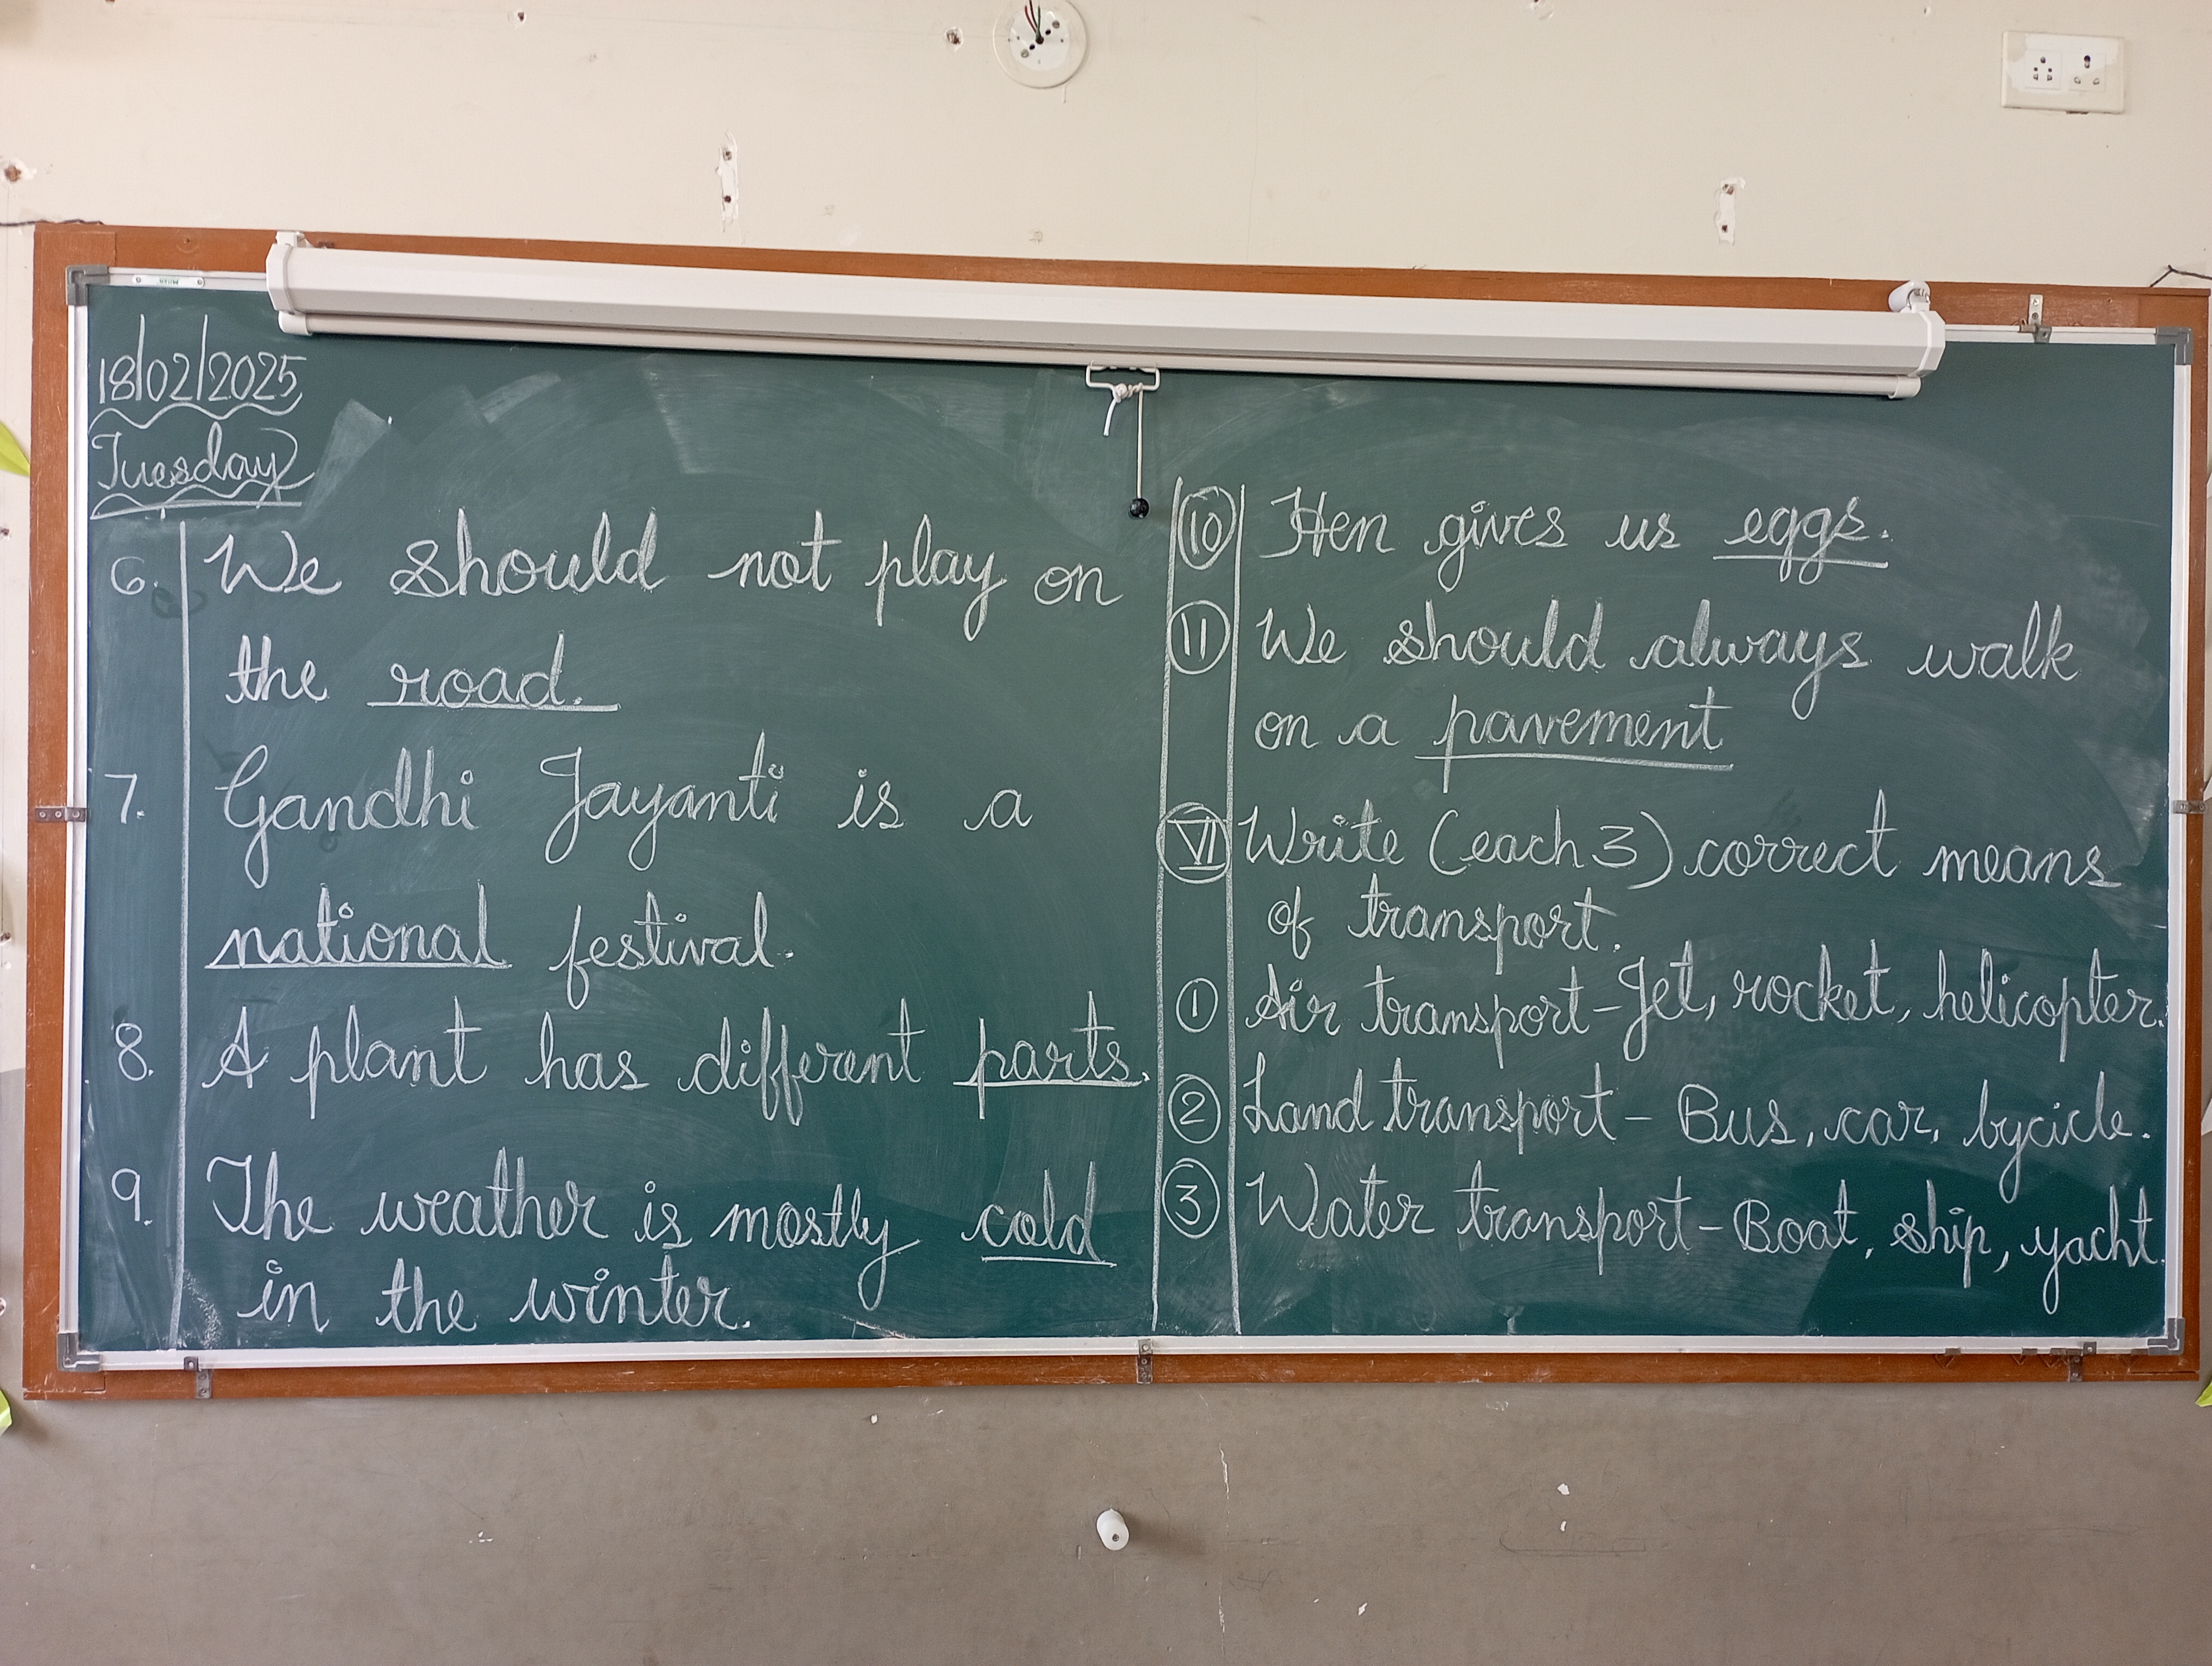 18/02/2025
Tuesday
6. We should not play on
the road.
7. Gandhi Jayanti is a
national festival.
8. A plant has different parts.
9. The weather is mostly cold
in the winter.
10 Hen gives us eggs.
11 We should always walk
on a pavement
VI Write (each 3) correct means
of transport.
1 Air transport - Jet, rocket, helicopter.
2 Land transport - Bus, car, bycicle.
3 Water transport - Boat, ship, yacht.